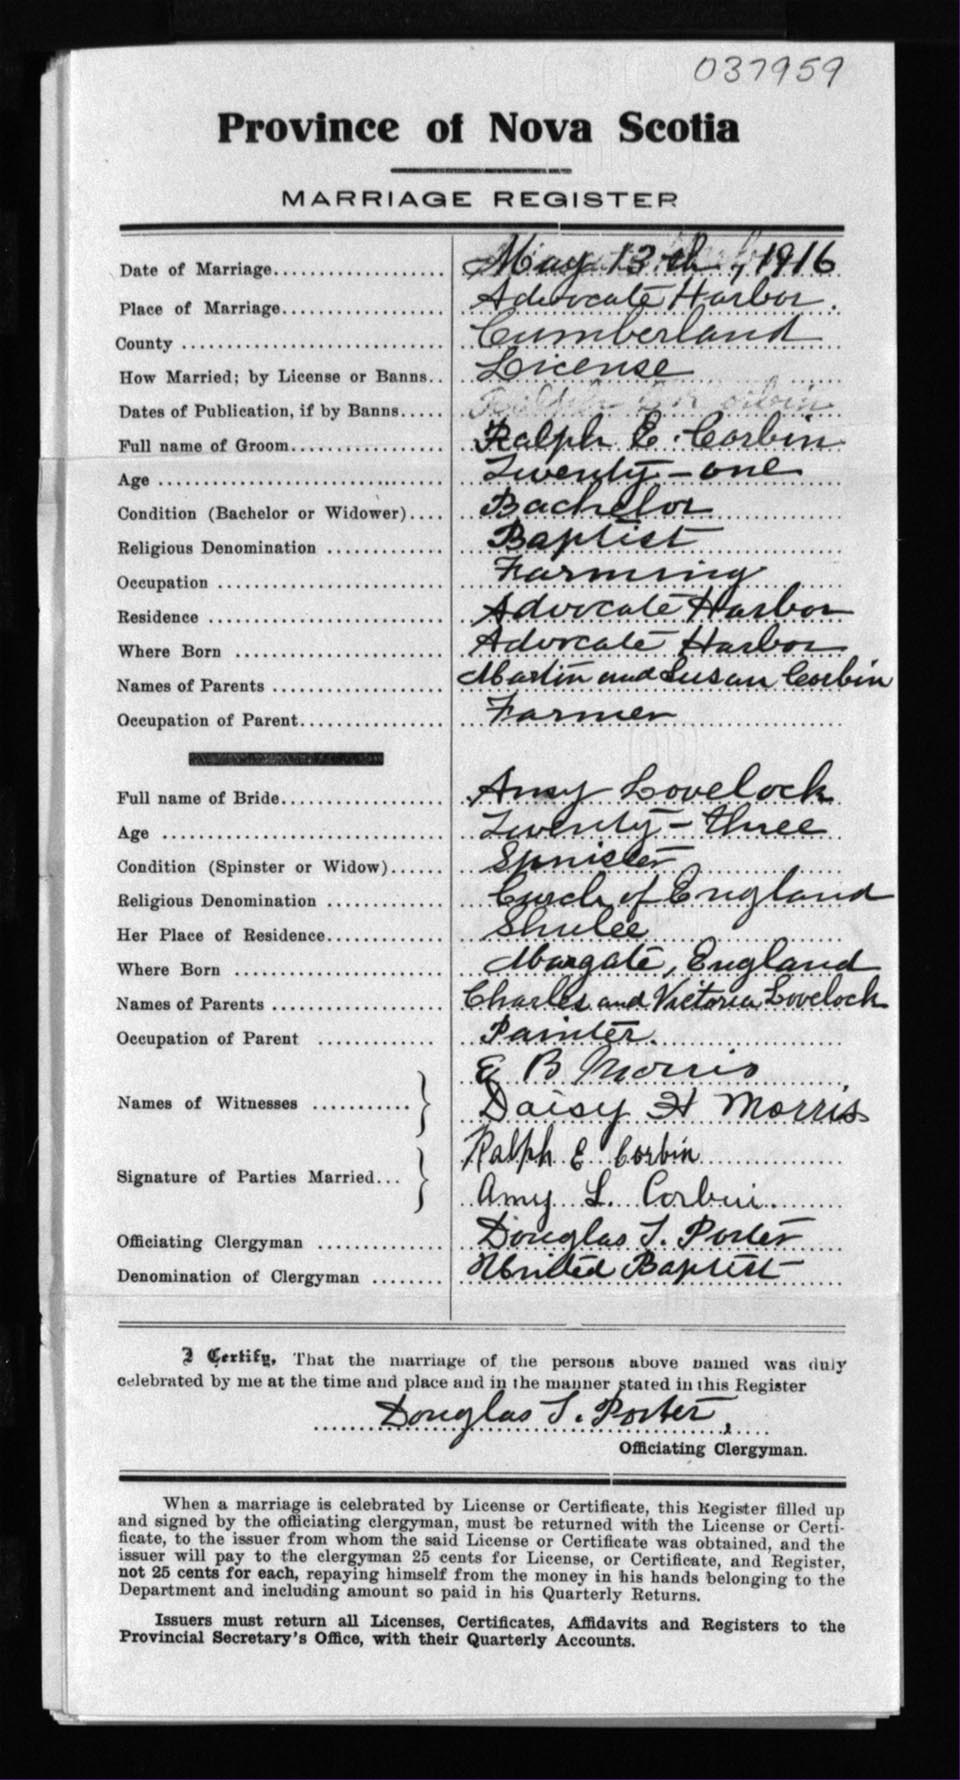 037959
Province of Nova Scotia
MARRIAGE REGISTER
Date of Marriage.................... May 13th, 1916
Place of Marriage.................. Advocate Harbor.
County ............................. Cumberland
How Married; by License or Banns.. License
Dates of Publication, if by Banns.....
Full name of Groom.................. Ralph E. Corbin
Age ................................. Twenty-one
Condition (Bachelor or Widower).... Bachelor
Religious Denomination ............. Baptist
Occupation ......................... Farming
Residence .......................... Advocate Harbor
Where Born ........................ Advocate Harbor
Names of Parents ................... Martin and Susan Corbin
Occupation of Parent................. Farmer
Full name of Bride................... Amy Lovelock
Age ................................. Twenty-three
Condition (Spinster or Widow)...... Spnister
Religious Denomination ............. Curch of England
Her Place of Residence.............. Shulee
Where Born ........................ Margate, England
Names of Parents ................... Charles and Victoria Lovelock
Occupation of Parent ............. Painter.
E B Morris
Names of Witnesses ........... Daisy H Morris
Ralph E Corbin
Signature of Parties Married...
Amy L. Corbin
Officiating Clergyman .............. Douglas T. Porter
Denomination of Clergyman ........ United Baptist
I Certify, That the marriage of the persons above named was duly
celebrated by me at the time and place and in the manner stated in this Register
Douglas T. Porter,
Officiating Clergyman.
When a marriage is celebrated by License or Certificate, this Register filled up
and signed by the officiating clergyman, must be returned with the License or Certi-
ficate, to the issuer from whom the said License or Certificate was obtained, and the
issuer will pay to the clergyman 25 cents for License, or Certificate, and Register,
not 25 cents for each, repaying himself from the money in his hands belonging to the
Department and including amount so paid in his Quarterly Returns.
Issuers must return all Licenses, Certificates, Affidavits and Registers to the
Provincial Secretary's Office, with their Quarterly Accounts.